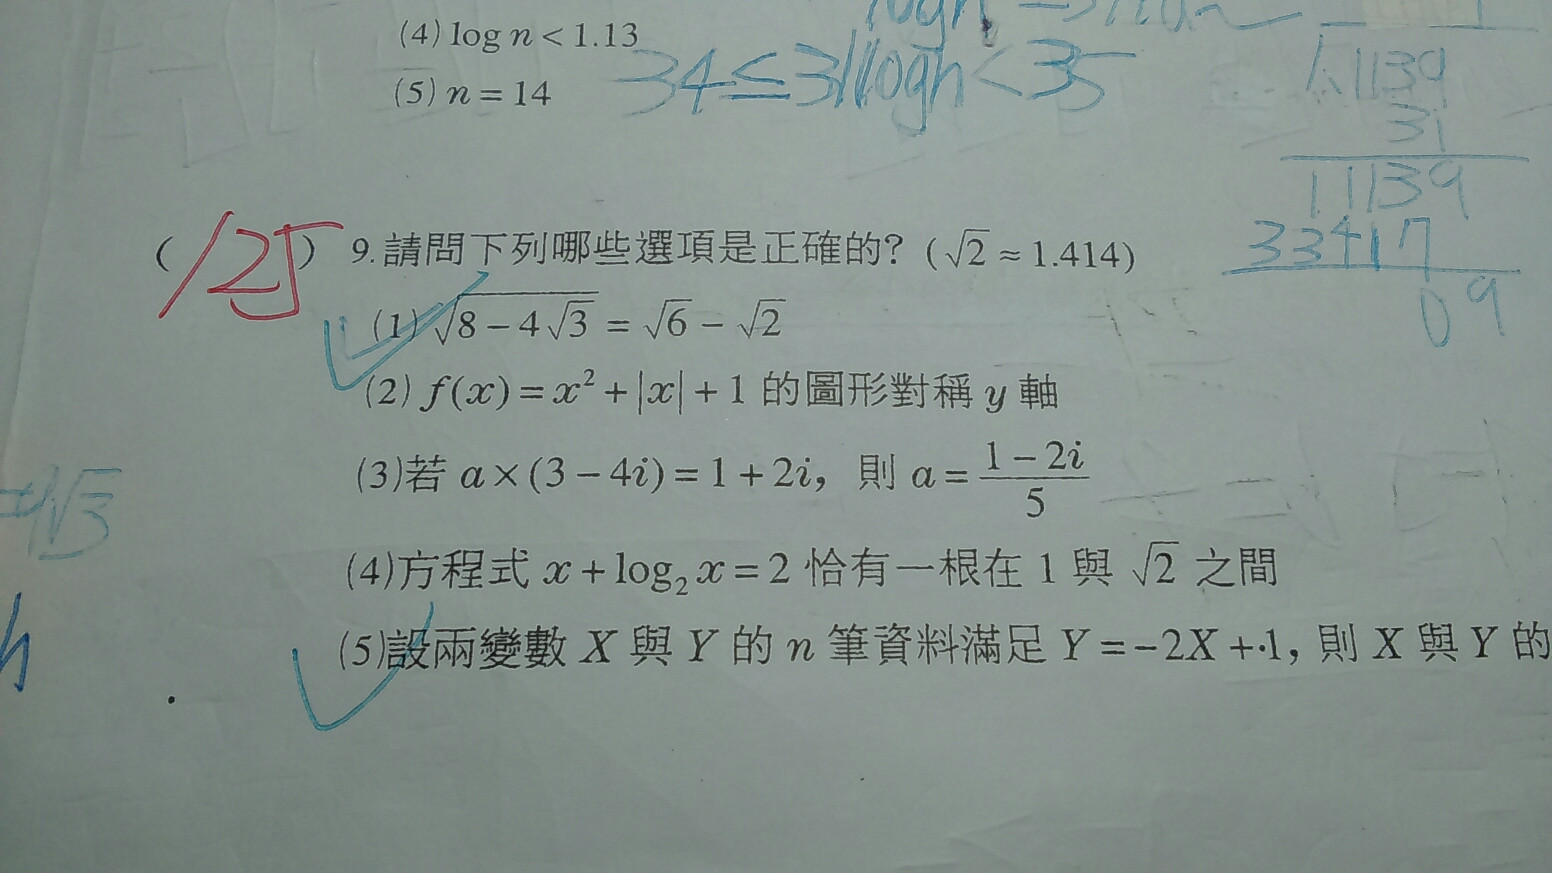 (4) log n < 1.13
34 ≤ 31logn < 35
(5) n = 14
1.1139
31
11139
33417
09
(125) 9.請問下列哪些選項是正確的? (√2 ≈ 1.414)
(1) √(8 − 4√3) = √6 − √2
(2) f(x) = x² + |x| + 1 的圖形對稱 y 軸
(3)若 a × (3 − 4i) = 1 + 2i, 則 a = (1 − 2i)/5
(4)方程式 x + log₂ x = 2 恰有一根在 1 與 √2 之間
(5)設兩變數 X 與 Y 的 n 筆資料滿足 Y = −2X + 1, 則 X 與 Y 的